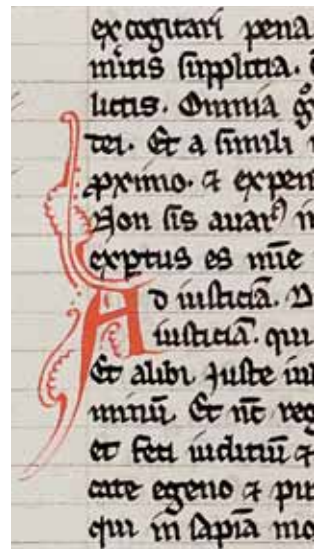 excogitari pena
mitis supplicia.
lictis. Omnia gͦ
tei. Et a simili
ꝓximo. ⁊ expen
Non sis auarꝰ in
exptus es mīe
Ad iusticiā. D
iusticiā. qui
Et alibi Juste iu
minū. Et nc̄ reg
et feci iudiciū ⁊
cate egeno ⁊ pu
qui in sapīa mo